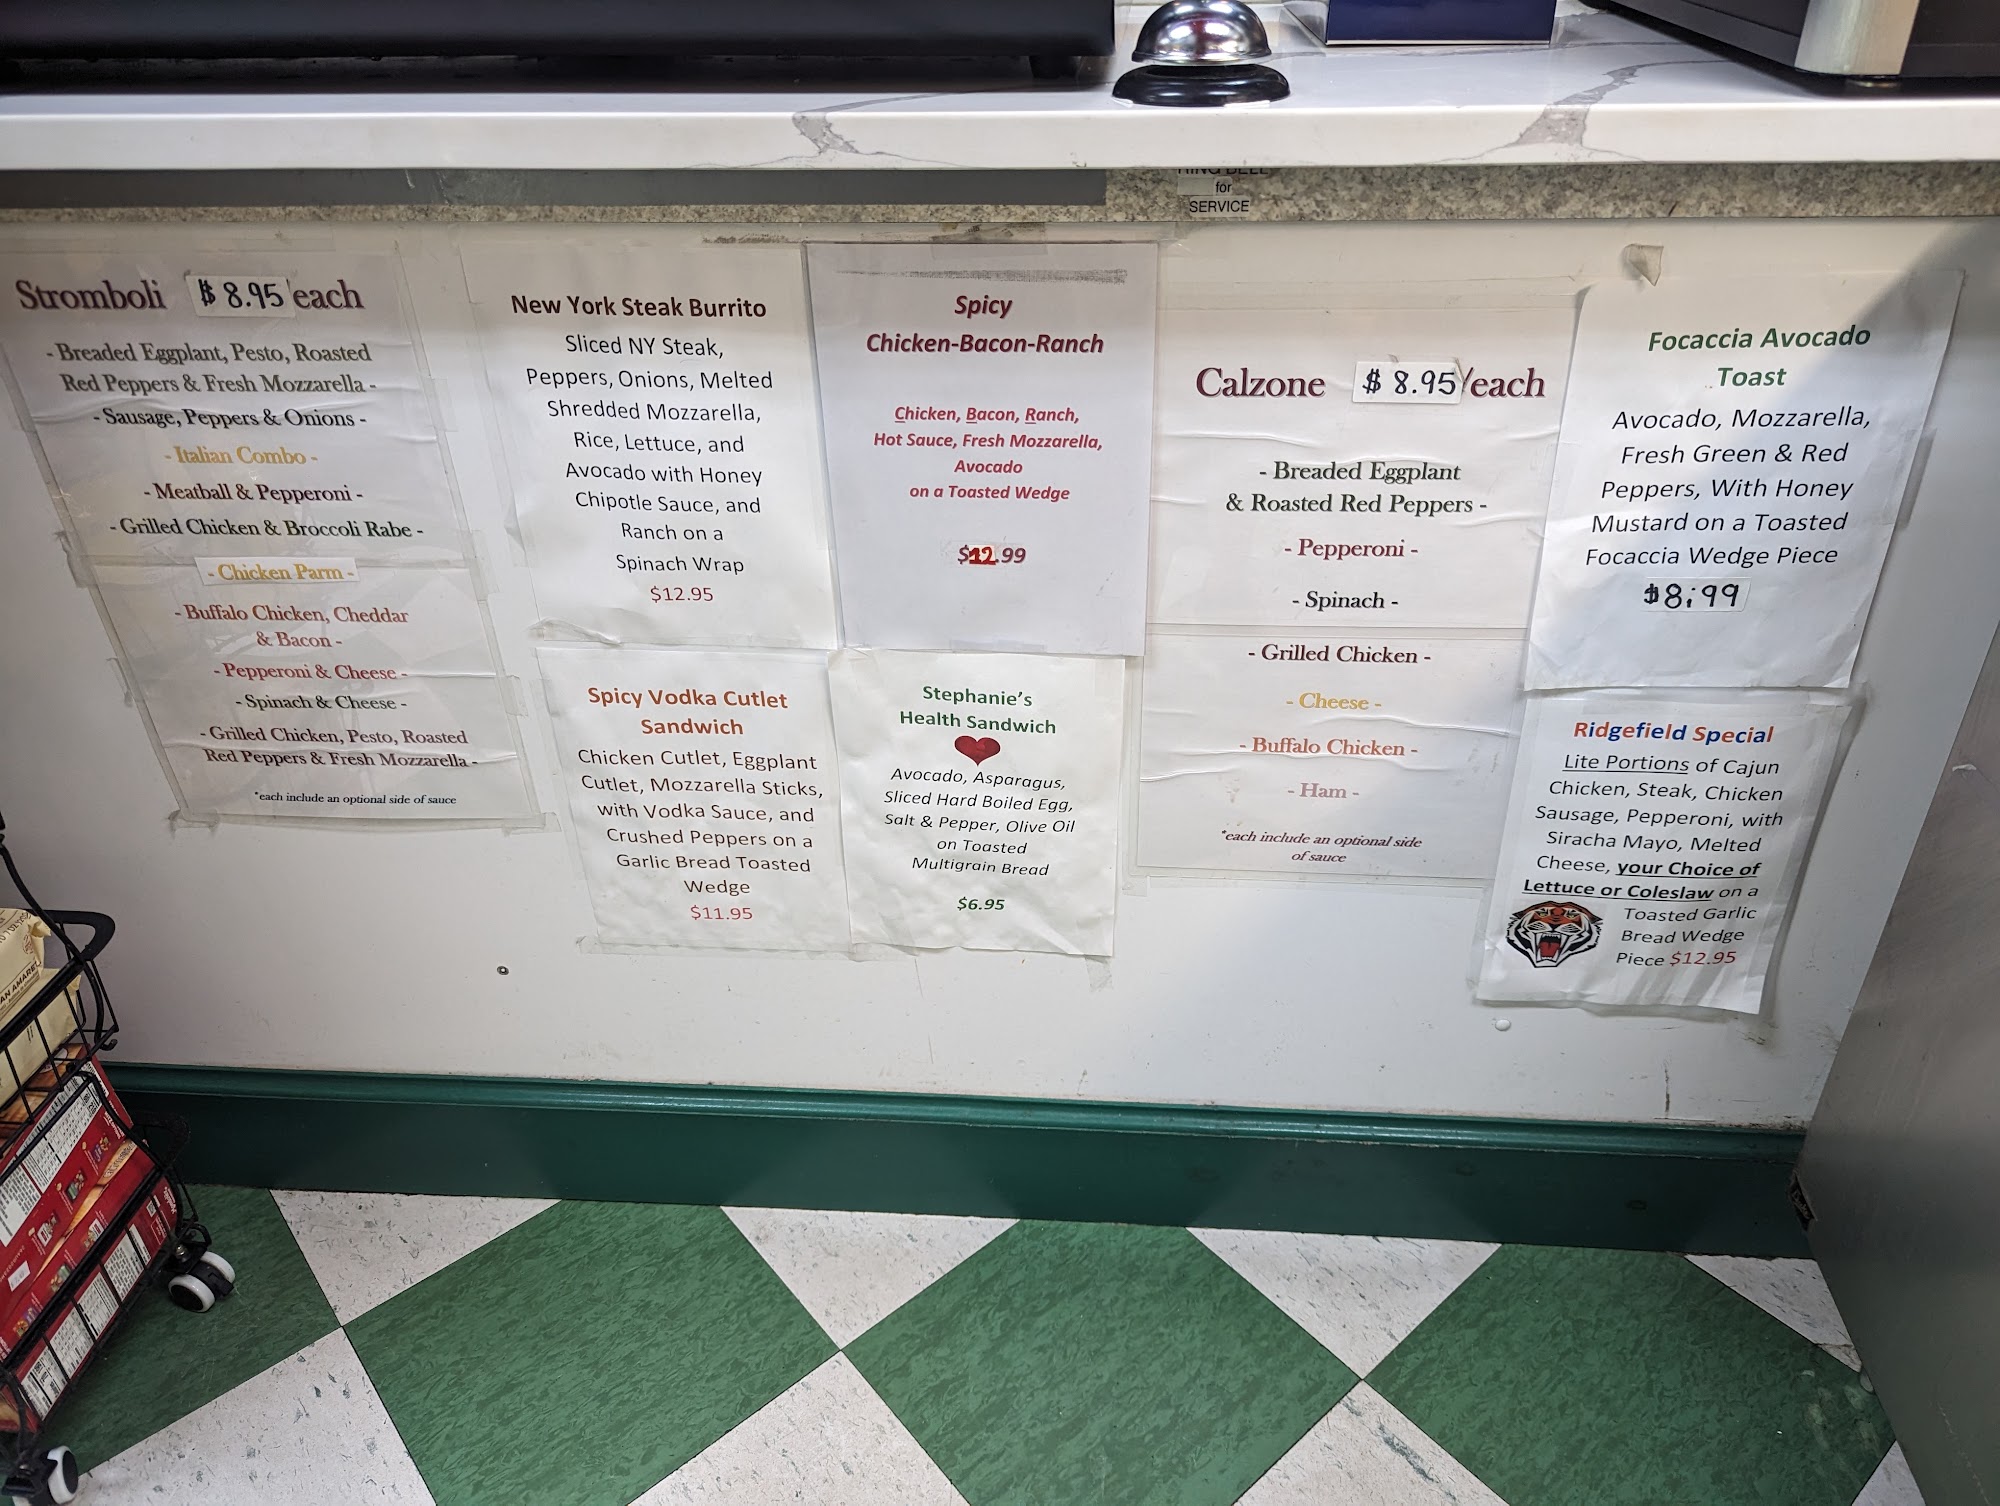 RING BELL
for
SERVICE
Stromboli $8.95/each
- Breaded Eggplant, Pesto, Roasted
Red Peppers & Fresh Mozzarella -
- Sausage, Peppers & Onions -
- Italian Combo -
- Meatball & Pepperoni -
- Grilled Chicken & Broccoli Rabe -
- Chicken Parm -
- Buffalo Chicken, Cheddar
& Bacon -
- Pepperoni & Cheese -
- Spinach & Cheese -
- Grilled Chicken, Pesto, Roasted
Red Peppers & Fresh Mozzarella -
*each include an optional side of sauce
New York Steak Burrito
Sliced NY Steak,
Peppers, Onions, Melted
Shredded Mozzarella,
Rice, Lettuce, and
Avocado with Honey
Chipotle Sauce, and
Ranch on a
Spinach Wrap
$12.95
Spicy
Chicken-Bacon-Ranch
Chicken, Bacon, Ranch,
Hot Sauce, Fresh Mozzarella,
Avocado
on a Toasted Wedge
$12.99
Spicy Vodka Cutlet
Sandwich
Chicken Cutlet, Eggplant
Cutlet, Mozzarella Sticks,
with Vodka Sauce, and
Crushed Peppers on a
Garlic Bread Toasted
Wedge
$11.95
Stephanie's
Health Sandwich
Avocado, Asparagus,
Sliced Hard Boiled Egg,
Salt & Pepper, Olive Oil
on Toasted
Multigrain Bread
$6.95
Calzone $8.95/each
- Breaded Eggplant
& Roasted Red Peppers -
- Pepperoni -
- Spinach -
- Grilled Chicken -
- Cheese -
- Buffalo Chicken -
- Ham -
*each include an optional side
of sauce
Focaccia Avocado
Toast
Avocado, Mozzarella,
Fresh Green & Red
Peppers, With Honey
Mustard on a Toasted
Focaccia Wedge Piece
$8.99
Ridgefield Special
Lite Portions of Cajun
Chicken, Steak, Chicken
Sausage, Pepperoni, with
Siracha Mayo, Melted
Cheese, your Choice of
Lettuce or Coleslaw on a
Toasted Garlic
Bread Wedge
Piece $12.95